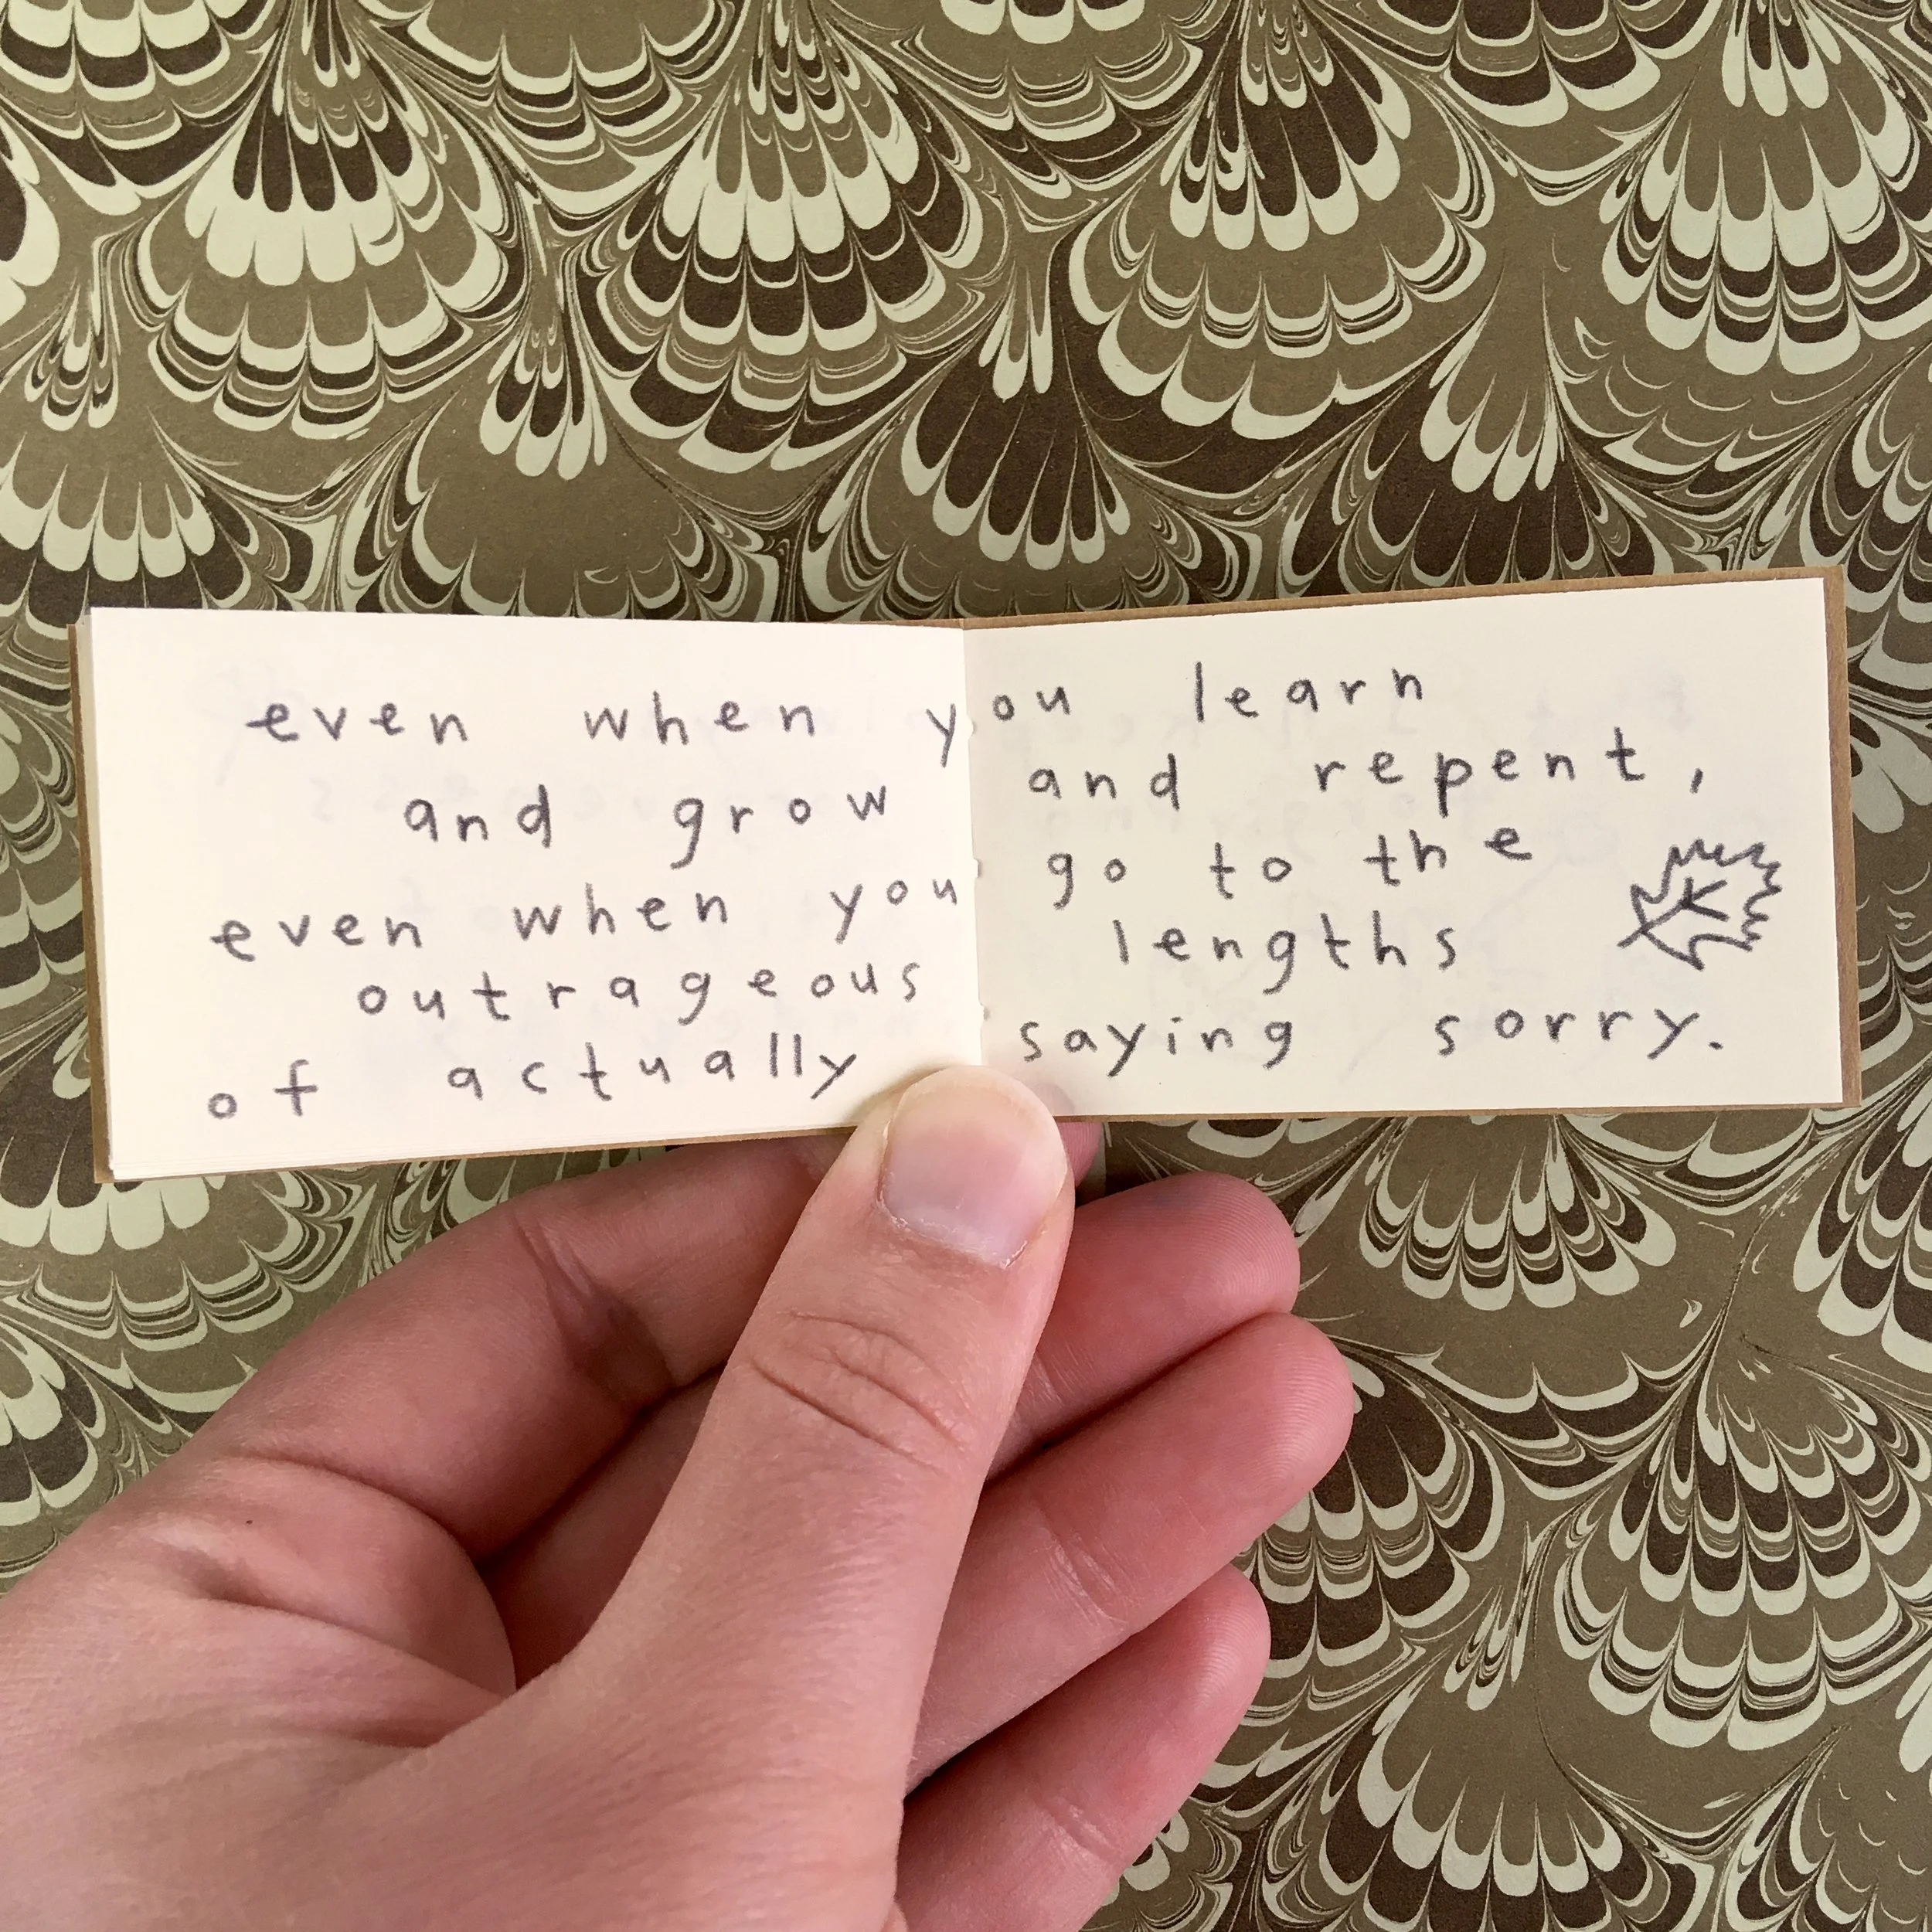 even when you learn
and grow and repent,
even when you go to the
outrageous lengths
of actually saying sorry.